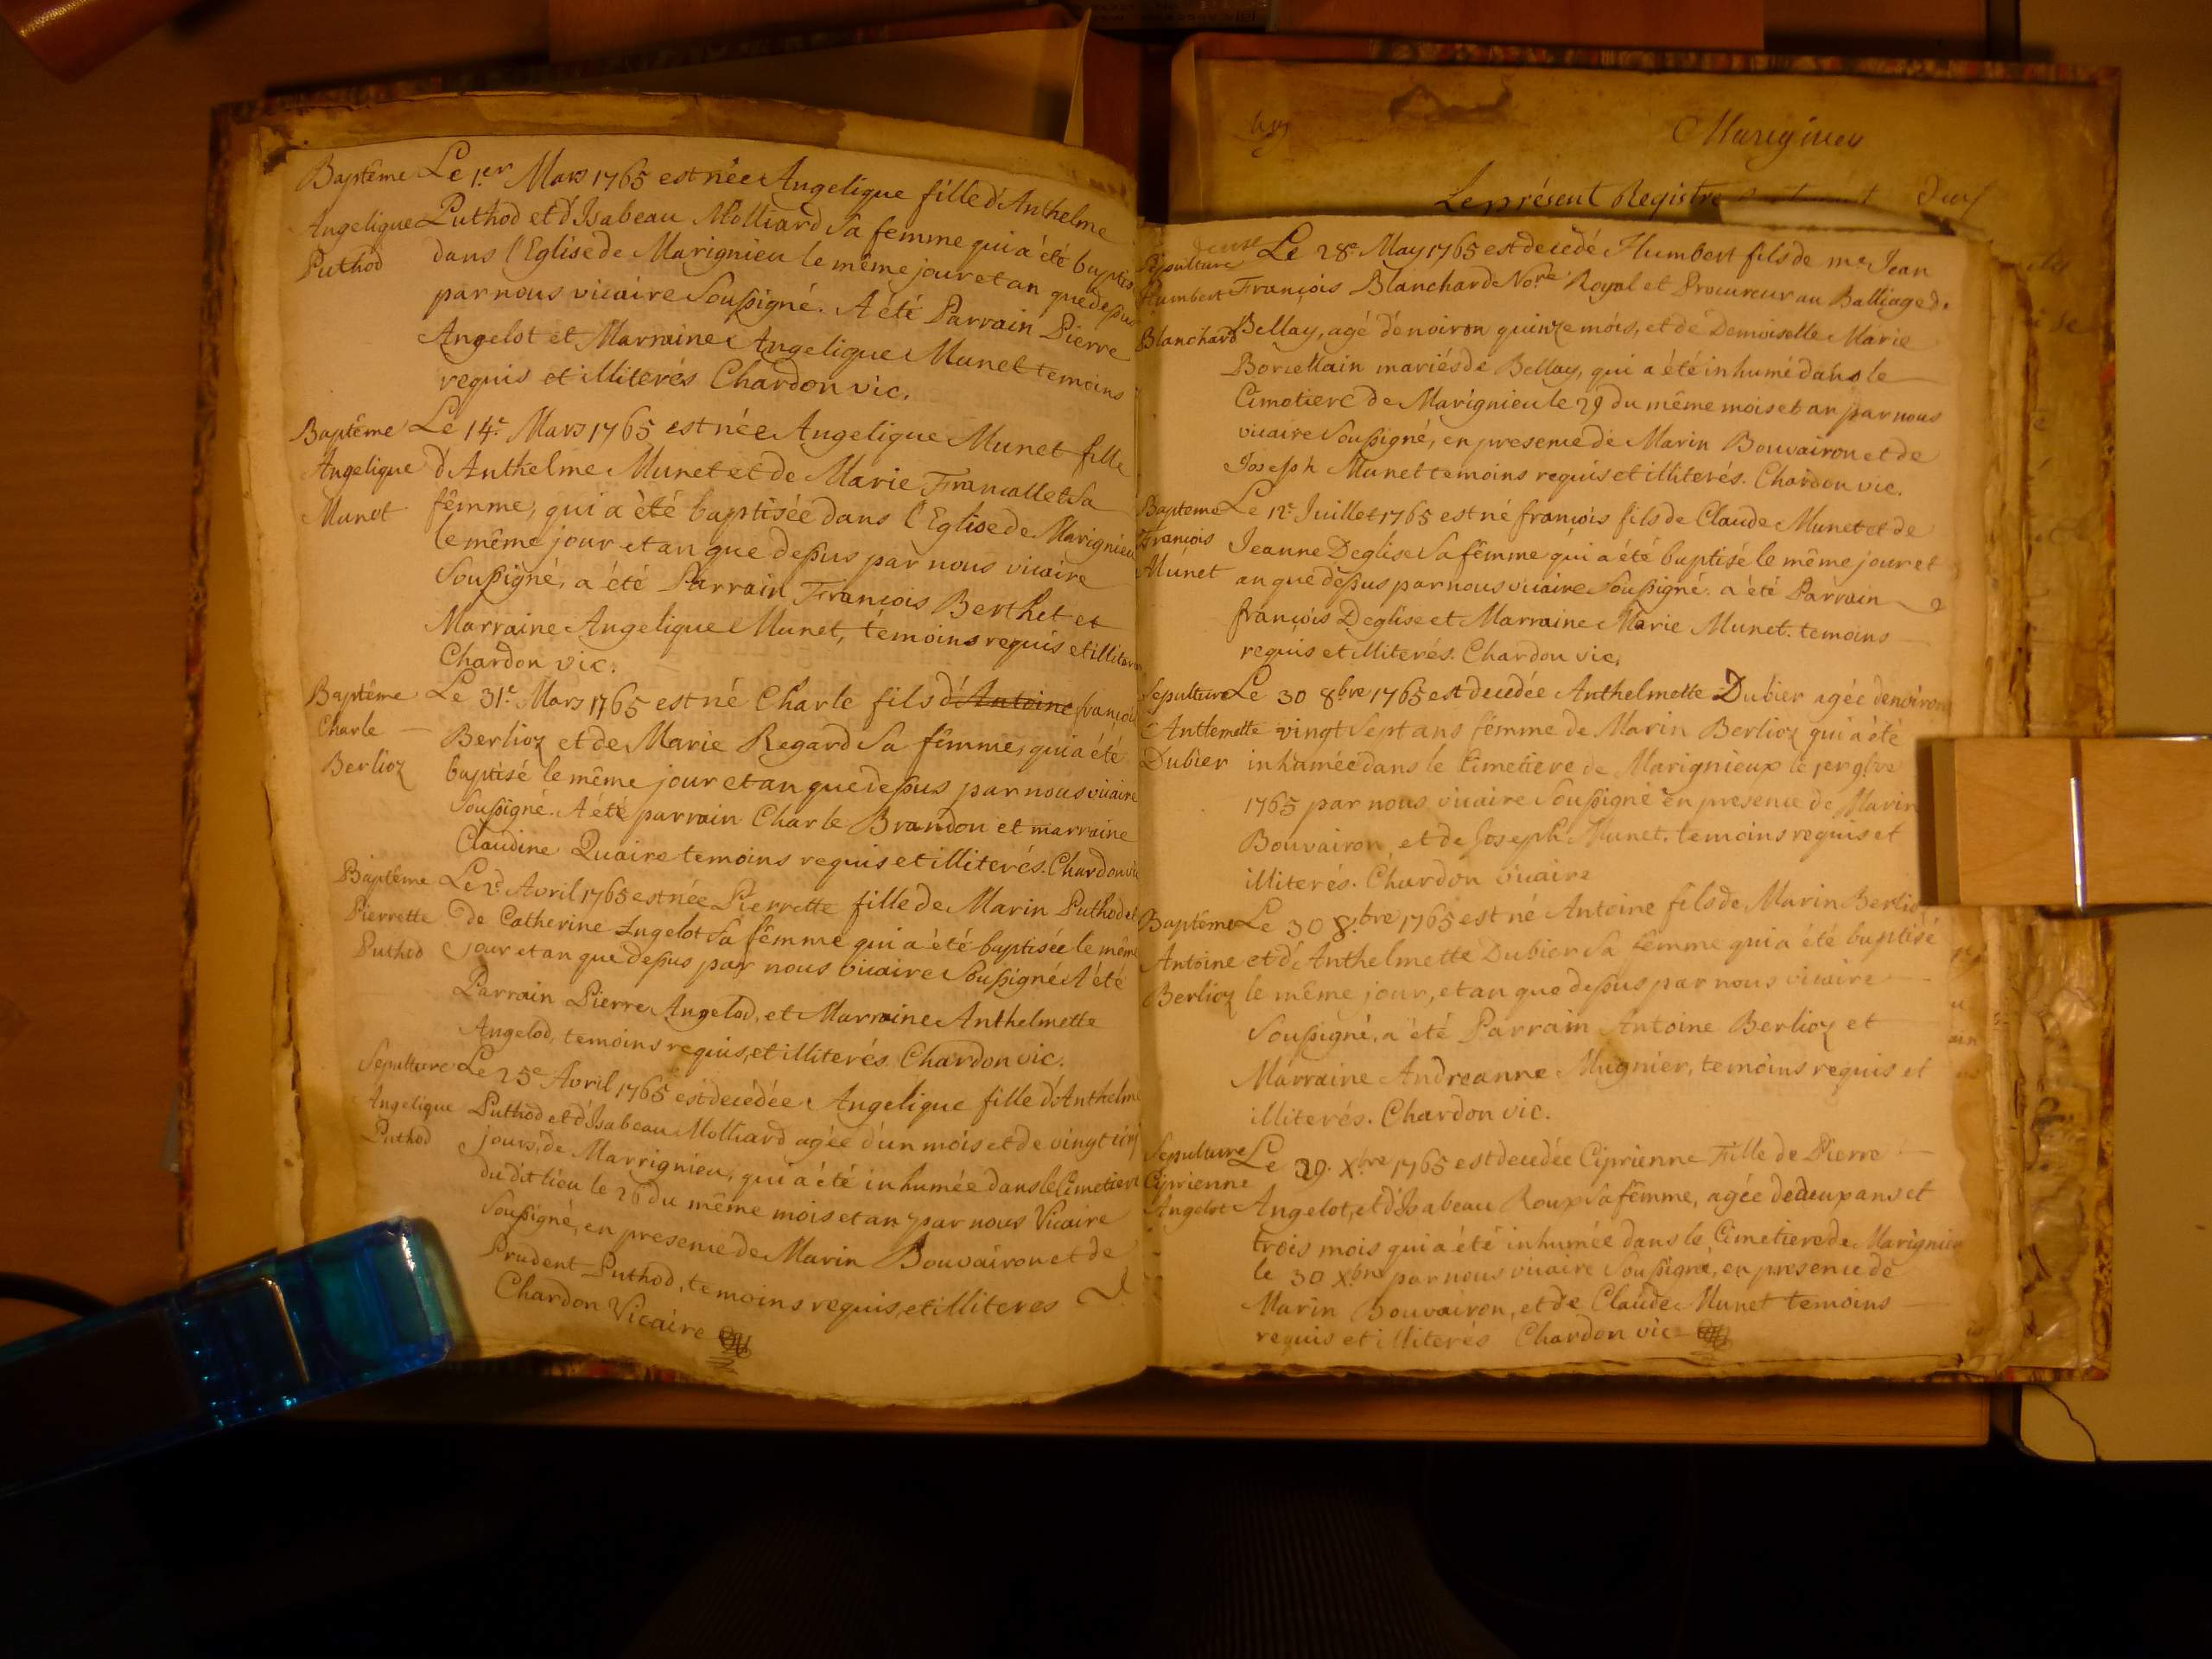 Baptême Le 1.er Mars 1765 est née Angelique fille d'Anthelme
Angelique Puthod et d'Isabeau Molliard Sa femme qui a été baptisé
Puthod dans l'Eglise de Marignieu le même jour et an que dessus
par nous vicaire Soussigné. A été Parrain Pierre
Angelot et Marraine Angelique Munet temoins
requis et illiterés Chardon vic.
Baptême Le 14.e Mars 1765 est née Angelique Munet fille
Angelique d'Anthelme Munet et de Marie Francallet Sa
Munet fêmme, qui a été baptisée dans l'Eglise de Marignieu
le même jour et an que dessus par nous vicaire
Soussigné, a été Parrain François Berthet et
Marraine Angelique Munet, temoins requis et illiterés
Chardon vic.
Baptême Le 31.e Mars 1765 est né Charle fils d'Antoine françois
Charle Berlioz et de Marie Regard Sa fêmme, qui a été
Berlioz baptisé le même jour et an que dessus par nous vicaire
Soussigné. A été parrain Charle Brandon et marraine
Claudine Quaire temoins requis et illiterés. Chardon vic
Baptême Le 2.d Avril 1765 est née Pierrette fille de Marin Puthod et
Pierrette de Catherine Lugelot Sa fêmme qui a été baptisée le même
Puthod jour et an que dessus par nous vicaire Soussigné A été
Parrain Pierre Angelod, et Marraine Anthelmette
Angelod, temoins requis, et illiterés Chardon vic.
Sepulture Le 25e Avril 1765 est decédée Angelique fille d'Anthelme
Angelique Puthod et d'Isabeau Molliard agée d'un mois et de vingt cinq
Puthod jours, de Marrignieu, qui a été inhumée dans le Cimetiere
du dit lieu le 26 du même mois et an par nous Vicaire
Soussigné, en presence de Marin Bouvairon et de
Prudent Puthod, temoins requis, et illiteres
Chardon Vicaire
Marignieu
Le présent Registre
Sepulture Le 28e May 1765 est decedé Humbert fils de me Jean
Humbert François Blanchard No.re Royal et Procureur au Balliage de
Blanchard Bellay, agé d'enoiron quinze móis, et de Demoiselle Marie
Borcellain mariés de Bellay, qui a été inhumé dans le
Cimetiere de Marignieu le 29 du même mois et an par nous
vicaire Soussigné, en presence de Marin Bouvairon et de
Joseph Munet temoins requis et illiterés. Chardon vic.
Bapteme Le 12e Juillet 1765 est né françois fils de Claude Munet et de
François Jeanne Deglise Sa fêmme qui a été baptisé le même jour et
Munet an que dessus par nous vicaire Soussigné. a été Parrain
françois Deglise et Marraine Marie Munet. temoins
requis et illiterés. Chardon vic.
Sepulture Le 30 8bre 1765 est decedée Anthelmette Dubier agée denoiron
Antlemette vingt Sept ans fêmme de Marin Berlioz qui a été
Dubier inhumée dans le Cimetiere de Marignieux le 1er 9bre
1765 par nous vicaire Soussigné en presence de Marin
Bouvairon et de Joseph Munet. temoins requis et
illiterés. Chardon vicaire
Baptême Le 30 8.bre 1765 est né Antoine fils de Marin Berlioz
Antoine et d'Anthelmette Dubier Sa femme qui a été baptisé
Berlioz le même jour, et an que dessus par nous vicaire
Soussigné, a été Parrain Antoine Berlioz et
Marraine Andreanne Mugnier, temoins requis et
illiterés. Chardon vic.
Sepulture Le 29 Xbre 1765 est decedée Ciprienne Fille de Pierre
Ciprienne
Angelot Angelot, et d'Isabeau Roux Sa fêmme, agée de deux ans et
trois mois qui a été inhumée dans le Cimetiere de Marignieu
le 30 Xbre par nous vicaire Soussigné, en presence de
Marin Bouvairon, et de Claude Munet temoins
requis et illiterés Chardon vic